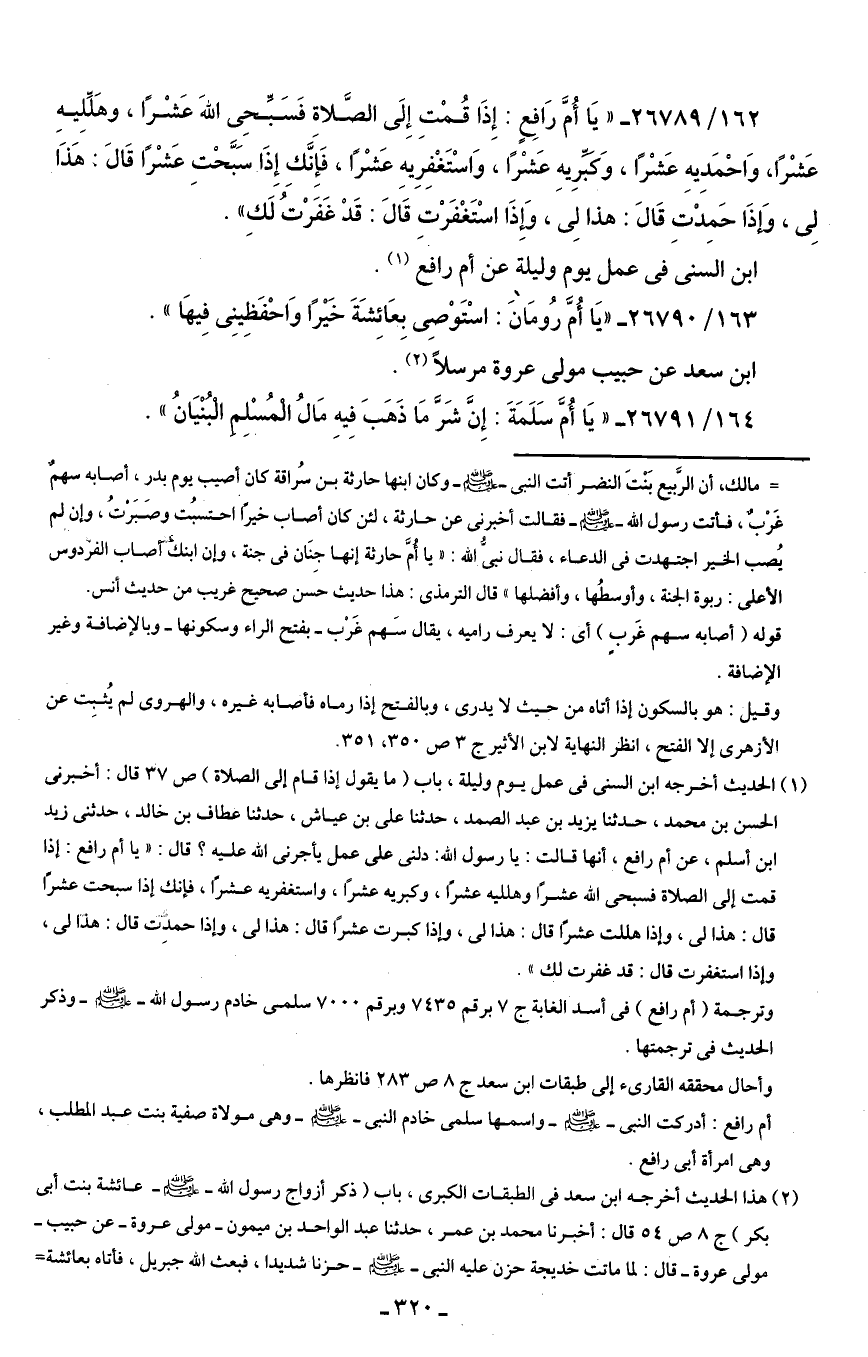 ١٦٢/ ٢٦٧٨٩ـ « يَا أُمَّ رَافِعٍ : إِذَا قُمْتِ إِلَى الصَّلاةِ فَسَبِّحِى اللهَ عَشْرًا ، وهَلِّلِيهِ
عَشْرًا، وَاحْمَدِيهِ عَشْرًا ، وَكَبِّرِيهِ عَشْرًا ، وَاسْتَغْفِرِيهِ عَشْرًا ، فَإِنَّكِ إِذَا سَبَّحْتِ عَشْرًا قَالَ : هَذَا
لِى ، وَإِذَا حَمِدْتِ قَالَ : هذا لِى ، وَإِذَا اسْتَغْفَرْتِ قَالَ : قَدْ غَفَرْتُ لَكِ» .
ابن السنى فى عمل يوم وليلة عن أم رافع (١) .
١٦٣/ ٢٦٧٩٠ـ «يَا أُمَّ رُومَانَ : اسْتَوْصِى بِعَائِشَةَ خَيْرًا وَاحْفَظِينِى فِيهَا » .
ابن سعد عن حبيب مولى عروة مرسلاً (٢) .
١٦٤/ ٢٦٧٩١ـ « يَا أُمَّ سَلَمَةَ : إِنَّ شَرَّ مَا ذَهَبَ فِيهِ مَالُ الْمُسْلِمِ الْبُنْيَانُ » .
= مالك، أن الرَّبيع بَنْتَ النضر أتت النبى ـ ﷺ ـ وكان ابنها حارثة بن سُراقة كان أصيب يوم بدر ، أصابه سهمٌ
غَرْبٌ ، فأتت رسول الله ـ ﷺ ـ فقالت أخبرنى عن حارثة ، لئن كان أصاب خيرًا احتسبْت وصَبَرْتُ ، وإن لم
يُصب الخير اجتهدت فى الدعاء ، فقال نبىُّ الله : « يا أمَّ حارثة إنها جنَان فى جنة ، وإن ابنك أصاب الفردوس
الأعلى : ربوة الجنة ، وأوسطُها ، وأفضلها » قال الترمذى : هذا حديث حسن صحيح غريب من حديث أنس.
قوله ( أصابه سهم غَربٍ ) أى : لا يعرف راميه ، يقال سَهم غَرْب ـ بفتح الراء وسكونها ـ وبالإضافة وغير
الإضافة .
وقيل : هو بالسكون إذا أتاه من حيث لا يدرى ، وبالفتح إذا رماه فأصابه غيره ، والهروى لم يُثبِت عن
الأزهرى إلا الفتح ، انظر النهاية لابن الأثير ج ٣ ص ٣٥٠، ٣٥١.
(١) الحديث أخرجه ابن السنى فى عمل يوم وليلة ، باب ( ما يقول إذا قام إلى الصلاة ) ص ٣٧ قال : أخبرنى
الحسن بن محمد ، حدثنا يزيد بن عبد الصمد ، حدثنا على بن عياش ، حدثنا عطاف بن خالد ، حدثنى زيد
ابن أسلم ، عن أم رافع ، أنها قالت : يا رسول الله: دلنى على عمل يأجرنى الله عليه ؟ قال : « يا أم رافع : إذا
قمت إلى الصلاة فسبحى الله عشرًا وهلليه عشرًا ، وكبريه عشرًا ، واستغفريه عشرًا ، فإنك إذا سبحت عشرًا
قال : هذا لى ، وإذا هللت عشرًا قال : هذا لى ، وإذا كبرت عشرًا قال : هذا لى ، وإذا حمدت قال : هذا لى ،
وإذا استغفرت قال : قد غفرت لك » .
وترجمة ( أم رافع ) فى أسد الغابة ج ٧ برقم ٧٤٣٥ وبرقم ٧٠٠٠ سلمى خادم رسول الله ـ ﷺ ـ وذكر
الحديث فى ترجمتها .
وأحال محققه القارىء إلى طبقات ابن سعد ج ٨ ص ٢٨٣ فانظرها .
أم رافع : أدركت النبى ـ ﷺ ـ واسمها سلمى خادم النبى ـ ﷺ ـ وهى مولاة صفية بنت عبد المطلب ،
وهى امرأة أبى رافع .
(٢) هذا الحديث أخرجه ابن سعد فى الطبقات الكبرى ، باب ( ذكر أزواج رسول الله ـ ﷺ ـ عائشة بنت أبى
بكر ) ج ٨ ص ٥٤ قال : أخبرنا محمد بن عمر ، حدثنا عبد الواحد بن ميمون ـ مولى عروة ـ عن حبيب ـ
مولى عروة ـ قال : لما ماتت خديجة حزن عليه النبى ـ ﷺ ـ حزنا شديدا ، فبعث الله جبريل ، فأتاه بعائشة=
ـ ٣٢٠ ـ